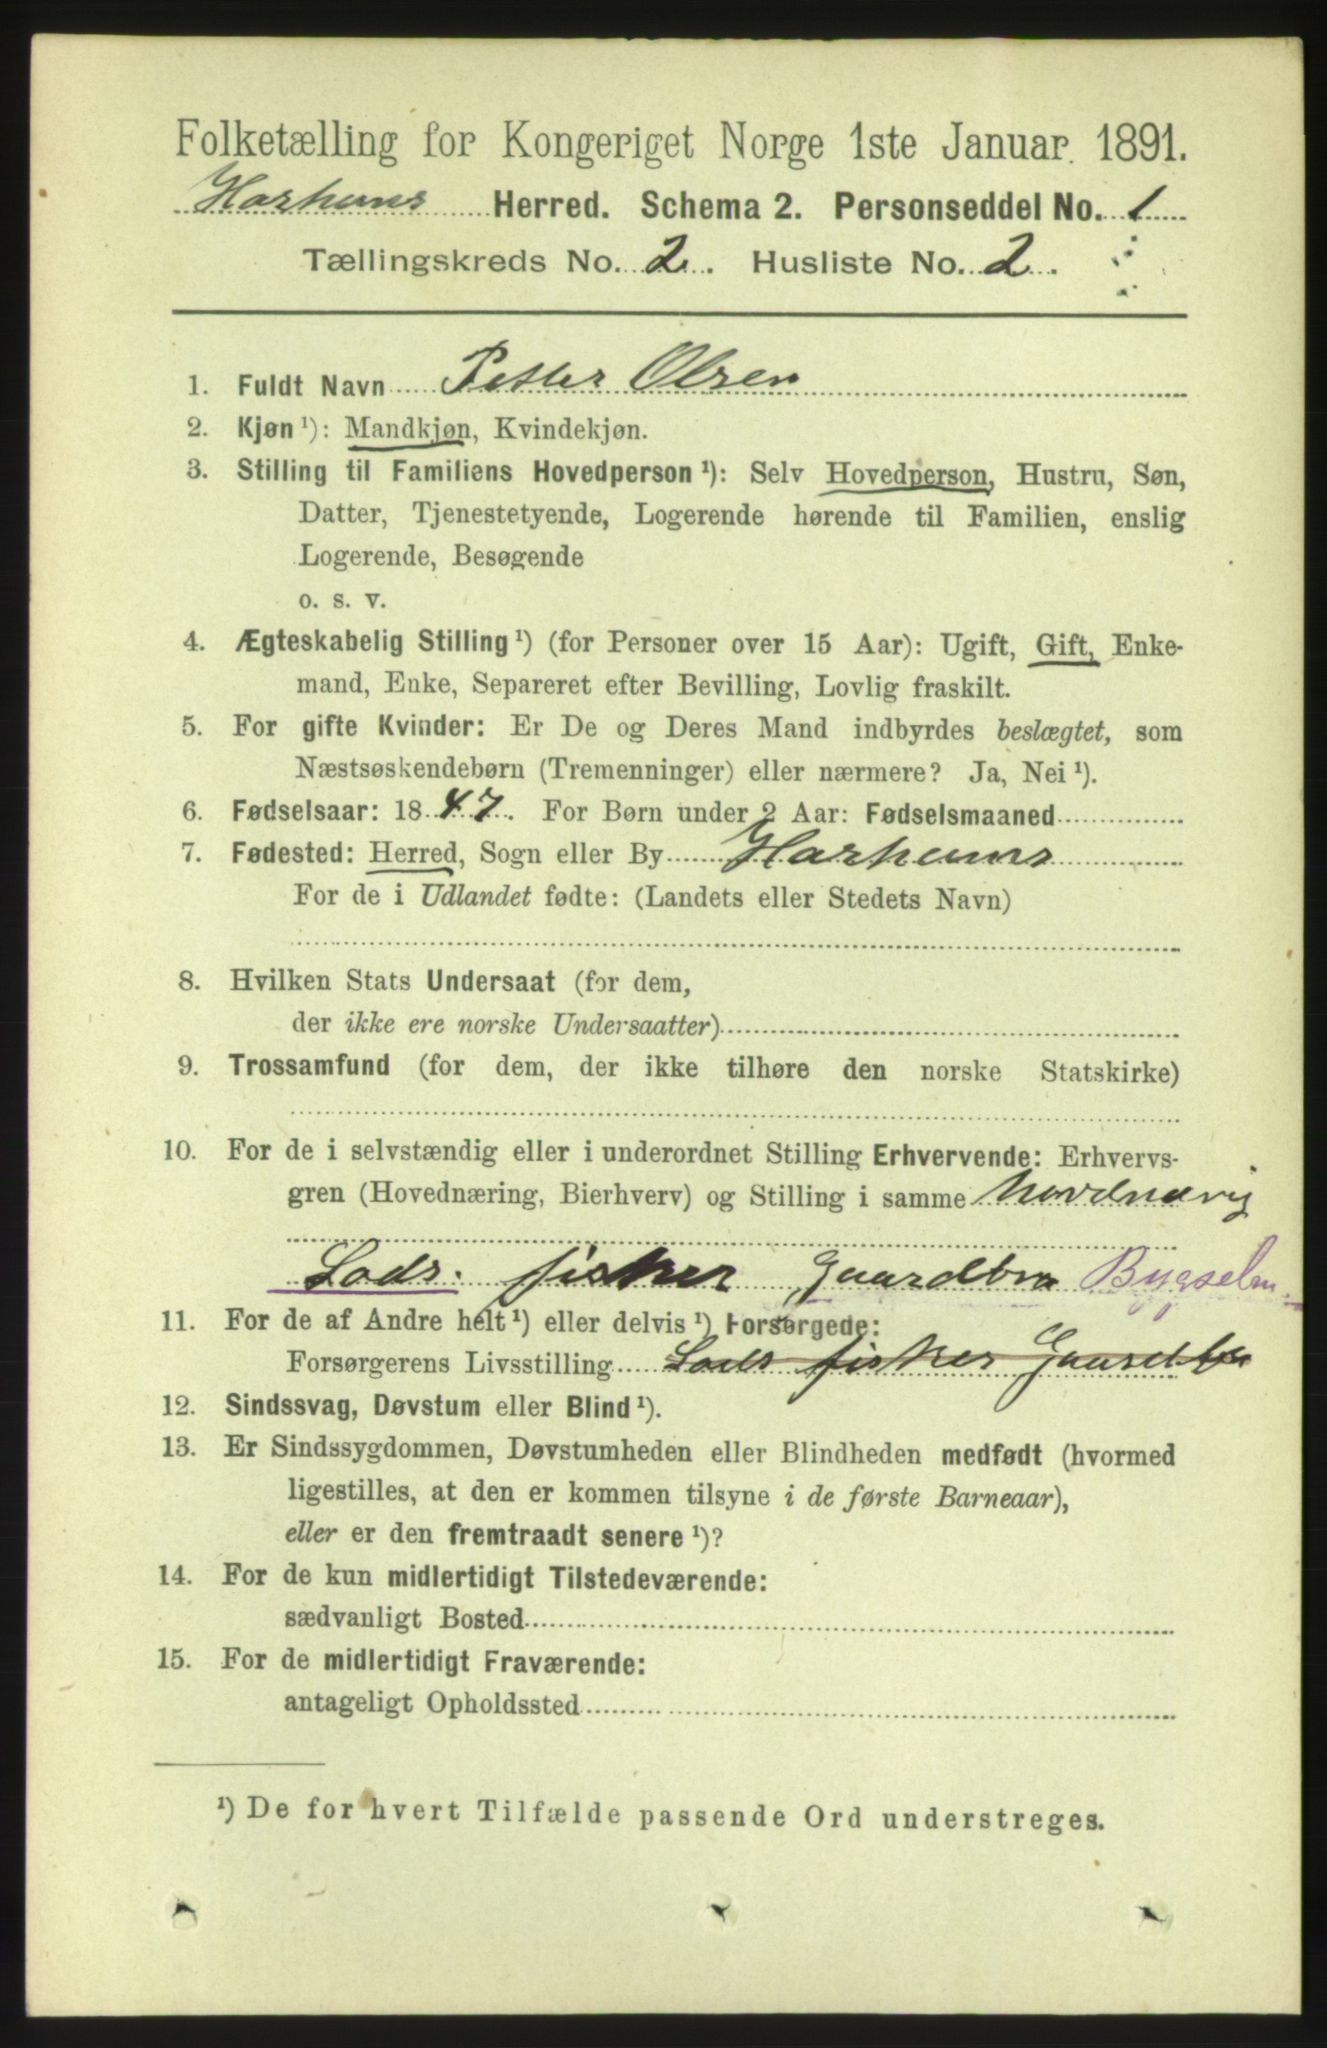 Folketælling for Kongeriget Norge 1ste Januar 1891.
Harhams Herred. Schema 2. Personseddel No. 1
Tællingskreds No. 2. Husliste No. 2.
1. Fuldt Navn Petter Olsen
2. Kjøn ¹): Mandkjøn, Kvindekjøn.
3. Stilling til Familiens Hovedperson ¹): Selv Hovedperson, Hustru, Søn,
Datter, Tjenestetyende, Logerende hørende til Familien, enslig
Logerende, Besøgende
o. s. v.
4. Ægteskabelig Stilling ¹) (for Personer over 15 Aar): Ugift, Gift, Enke-
mand, Enke, Separeret efter Bevilling, Lovlig fraskilt.
5. For gifte Kvinder: Er De og Deres Mand indbyrdes beslægtet, som
Næstsøskendebørn (Tremenninger) eller nærmere? Ja, Nei ¹).
6. Fødselsaar: 1847. For Børn under 2 Aar: Fødselsmaaned
7. Fødested: Herred, Sogn eller By Harhams
For de i Udlandet fødte: (Landets eller Stedets Navn)
8. Hvilken Stats Undersaat (for dem,
der ikke ere norske Undersaatter)
9. Trossamfund (for dem, der ikke tilhøre den norske Statskirke)
10. For de i selvstændig eller i underordnet Stilling Erhvervende: Erhvervs-
gren (Hovednæring, Bierhverv) og Stilling i samme
Lods. fisker Gaardbru Bygselm.
11. For de af Andre helt ¹) eller delvis ¹) Forsørgede:
Forsørgerens Livsstilling Lods fisker Gaardbr
12. Sindssvag, Døvstum eller Blind ¹).
13. Er Sindssygdommen, Døvstumheden eller Blindheden medfødt (hvormed
ligestilles, at den er kommen tilsyne i de første Barneaar),
eller er den fremtraadt senere ¹)?
14. For de kun midlertidigt Tilstedeværende:
sædvanligt Bosted
15. For de midlertidigt Fraværende:
antageligt Opholdssted
¹) De for hvert Tilfælde passende Ord understreges.